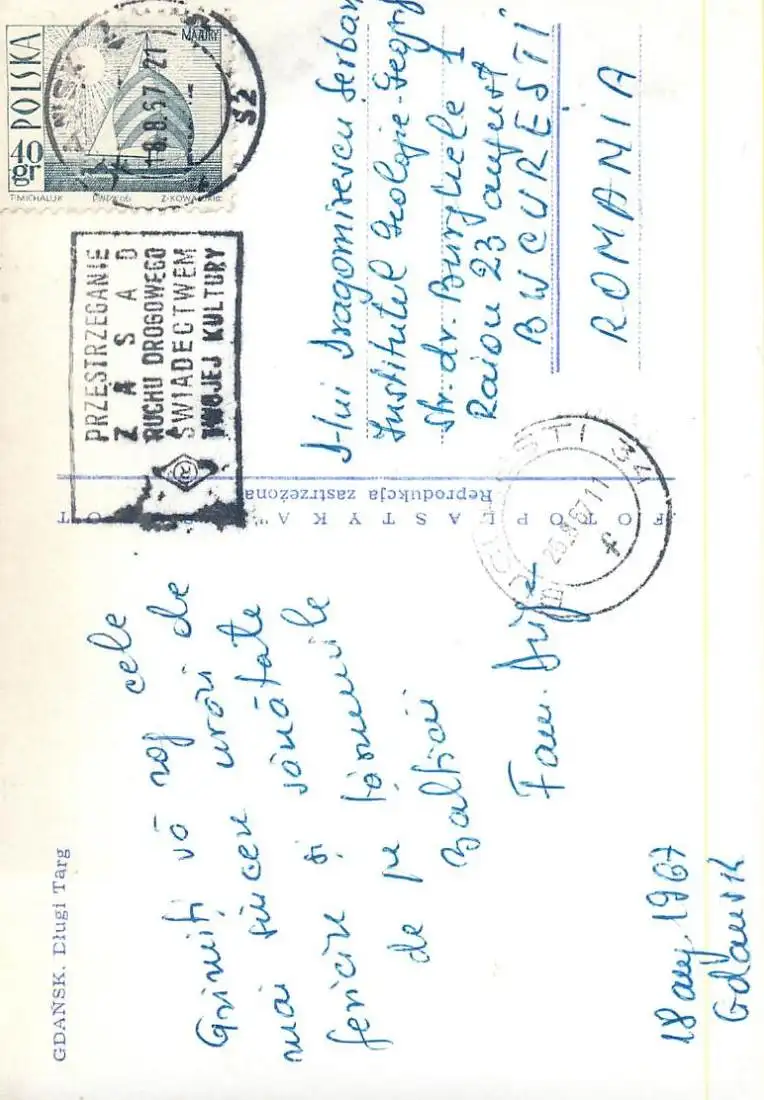 GDAŃSK. Długi Targ
Primiți vă rog cele
mai sincere urări de
fericire și sănătate
de pe țărmurile
Balticii
Fam.
18 aug. 1967
Gdansk
"FOTOPLASTYKA"
Reprodukcja zastrzeżona
POLSKA
40
gr
MAZURY
T.MICHALUK PWPW 66
PRZESTRZEGANIE
ZASAD
RUCHU DROGOWEGO
ŚWIADECTWEM
TWOJEJ KULTURY
D-lui Dragomirescu Șerban
Institutul Geologie-Geogr
Str. dr. Burghele 1
Raion 23 august
BUCUREȘTI
ROMANIA